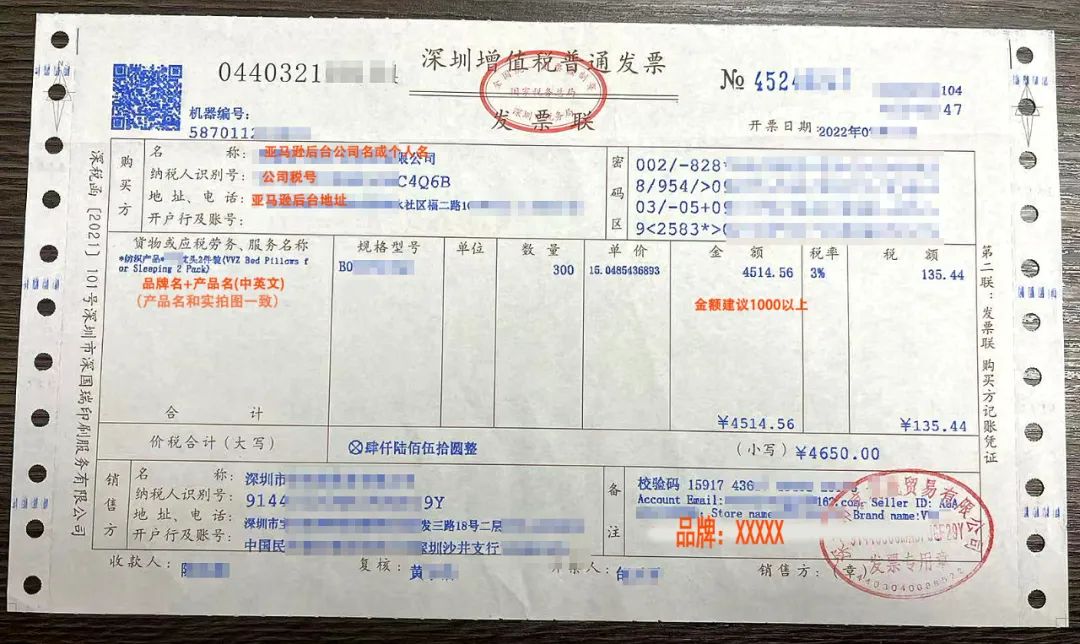 深圳增值税普通发票
发票联
0440321
№ 4524
104
47
机器编号：
5870112
开票日期：2022年0
国家税务总局
购买方
名称：亚马逊后台公司名或个人名 限公司
纳税人识别号：公司税号 C4Q6B
地址、电话：亚马逊后台地址 水社区福二路10
开户行及账号：
密码区
002/-828*
8/954/>09
03/-05+09
9<2583*>
货物或应税劳务、服务名称 规格型号 单位 数量 单价 金额 税率 税额
*纺织产品* 枕头2件装(VVZ Bed Pillows f
or Sleeping 2 Pack)
B0 300 15.0485436893 4514.56 3% 135.44
品牌名+产品名(中英文)
(产品名和实拍图一致)
金额建议1000以上
合计 ¥4514.56 ¥135.44
价税合计(大写) ⊗肆仟陆佰伍拾圆整 (小写) ¥4650.00
销售方
名称：深圳市
纳税人识别号：9144 9Y
地址、电话：深圳市宝 发三路18号二层
开户行及账号：中国民 深圳沙井支行
备注
校验码 15917 436
Account Email: 162.com Seller ID: A
Store name Brand name:V
品牌：XXXXX
贸易有限公司
发票专用章
收款人： 复核：黄 开票人： 销售方：(章)
深税函[2021]101号深圳市深国瑞印刷服务有限公司
第二联：发票联 购买方记账凭证